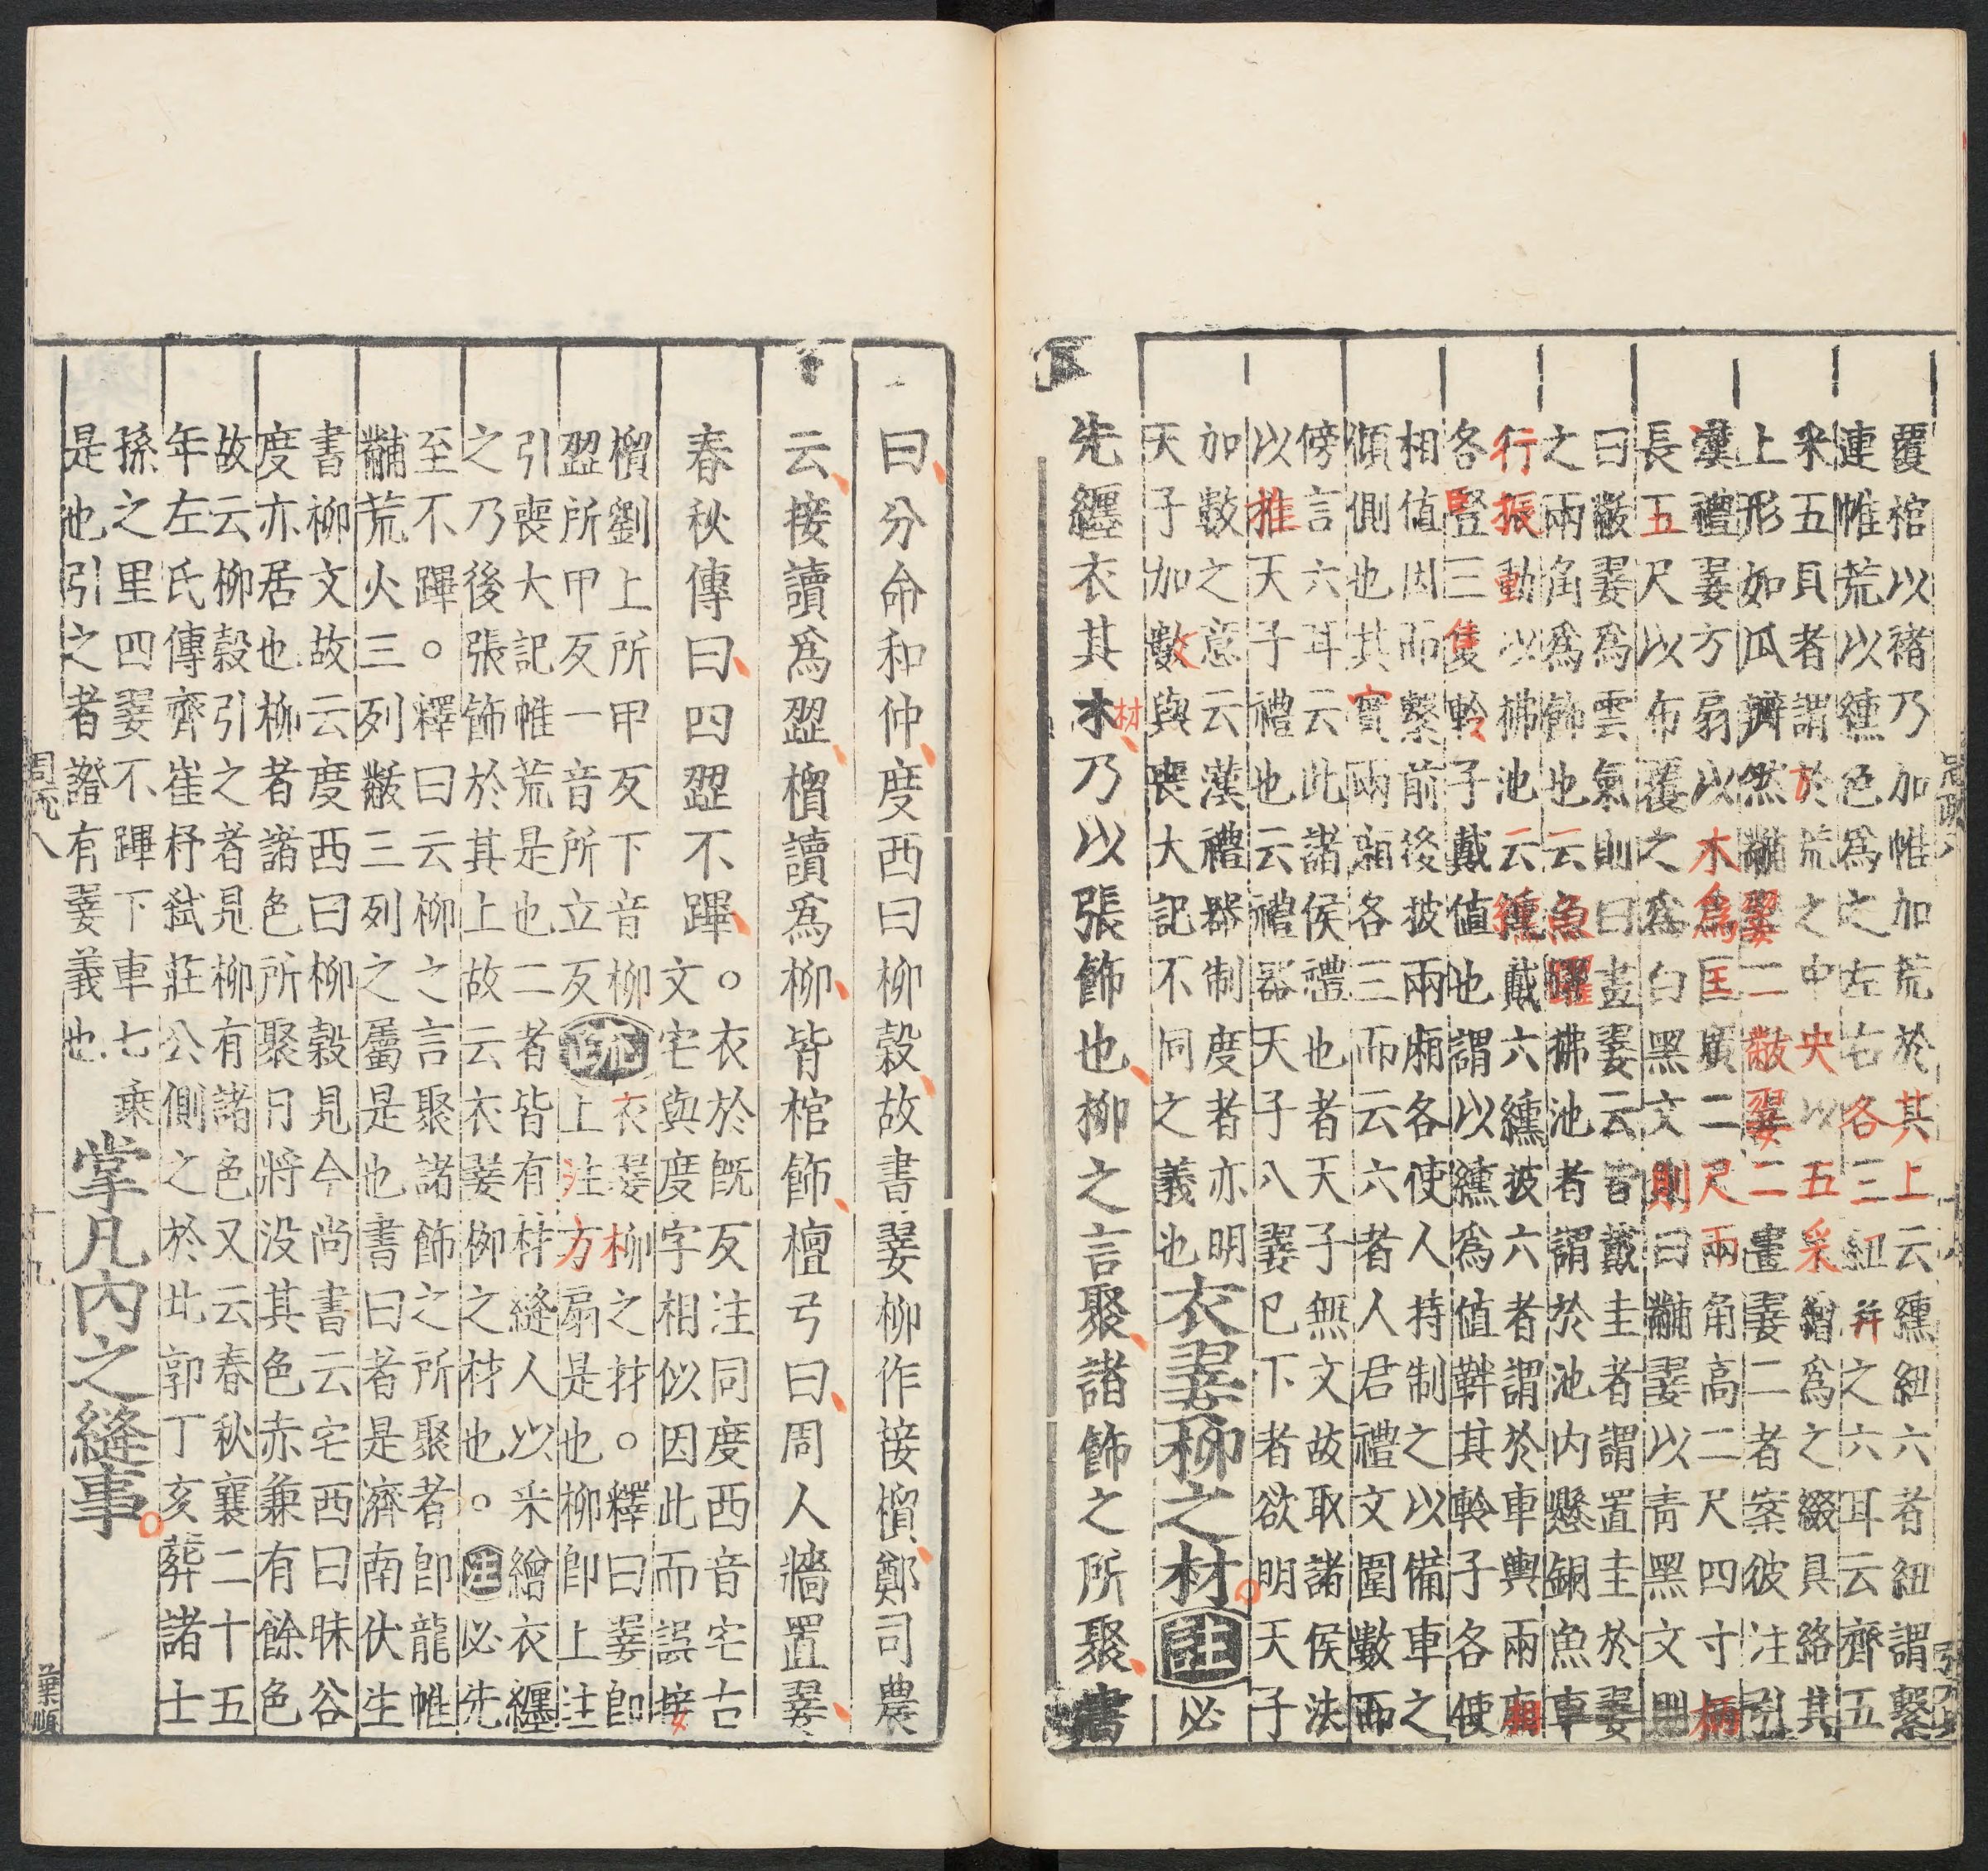 覆棺以褚乃加帷加荒於其上云纁紐六者紐謂繫
連帷荒以纁色爲之左右各三紐并之六耳云齊五
采五貝者謂於荒之中央以五采繒爲之綴貝絡其
上形如瓜瓣然黼翣二黻翣二畫翣二者案彼注引
漢禮翣方扇以木爲匡廣二尺兩角高二尺四寸柄
長五尺以布覆之爲白黑文則曰黼翣以青黑文則
曰黻翣爲雲氣則曰畫翣云皆戴圭者謂置圭於翣
之兩角爲飾也云魚躍拂池者謂於池内懸銅魚車
行振動以拂池云纁戴六纁披六者謂於車輿兩廂
各豎三隻軨子戴值也謂以纁爲值鞼其軨子各使
相值因而繫前後披兩廂各使人持制之以備車之
傾側也其實兩廂各三而云六者人君禮文圍數而
傍言六耳云此諸侯禮也者天子無文故取諸侯法
以推天子禮也云禮器天子八翣已下者欲明天子
加數之意云漢禮器制度者亦明
天子加數與喪大記不同之義也衣翣柳之材註必
先纏衣其木材乃以張飾也柳之言聚諸飾之所聚書
曰分命和仲度西曰柳穀故書翣柳作接櫌鄭司農
云接讀爲歰櫌讀爲柳皆棺飾檀弓曰周人牆置翣
春秋傳曰四歰不蹕。衣於旣反注同度西音宅古
文宅與度字相似因此而誤接
櫌劉上所甲反下音柳衣翣柳之材。釋曰翣即
歰所甲反一音所立反疏上注方扇是也柳即上注
引喪大記帷荒是也二者皆有材縫人以采繒衣纏
之乃後張飾於其上故云衣翣柳之材也。注必先
至不蹕。釋曰云柳之言聚諸飾之所聚者卽龍帷
黼荒火三列黻三列之屬是也書曰者是濟南伏生
書柳文故云度西曰柳穀見今尚書云宅西曰昧谷
度亦居也柳者諸色所聚日將没其色赤兼有餘色
故云柳穀引之者見柳有諸色又云春秋襄二十五
年左氏傳齊崔杼弑莊公側之於北郭丁亥葬諸士
孫之里四翣不蹕下車七乘
是也引之者證有翣義也掌凡内之縫事
葉順